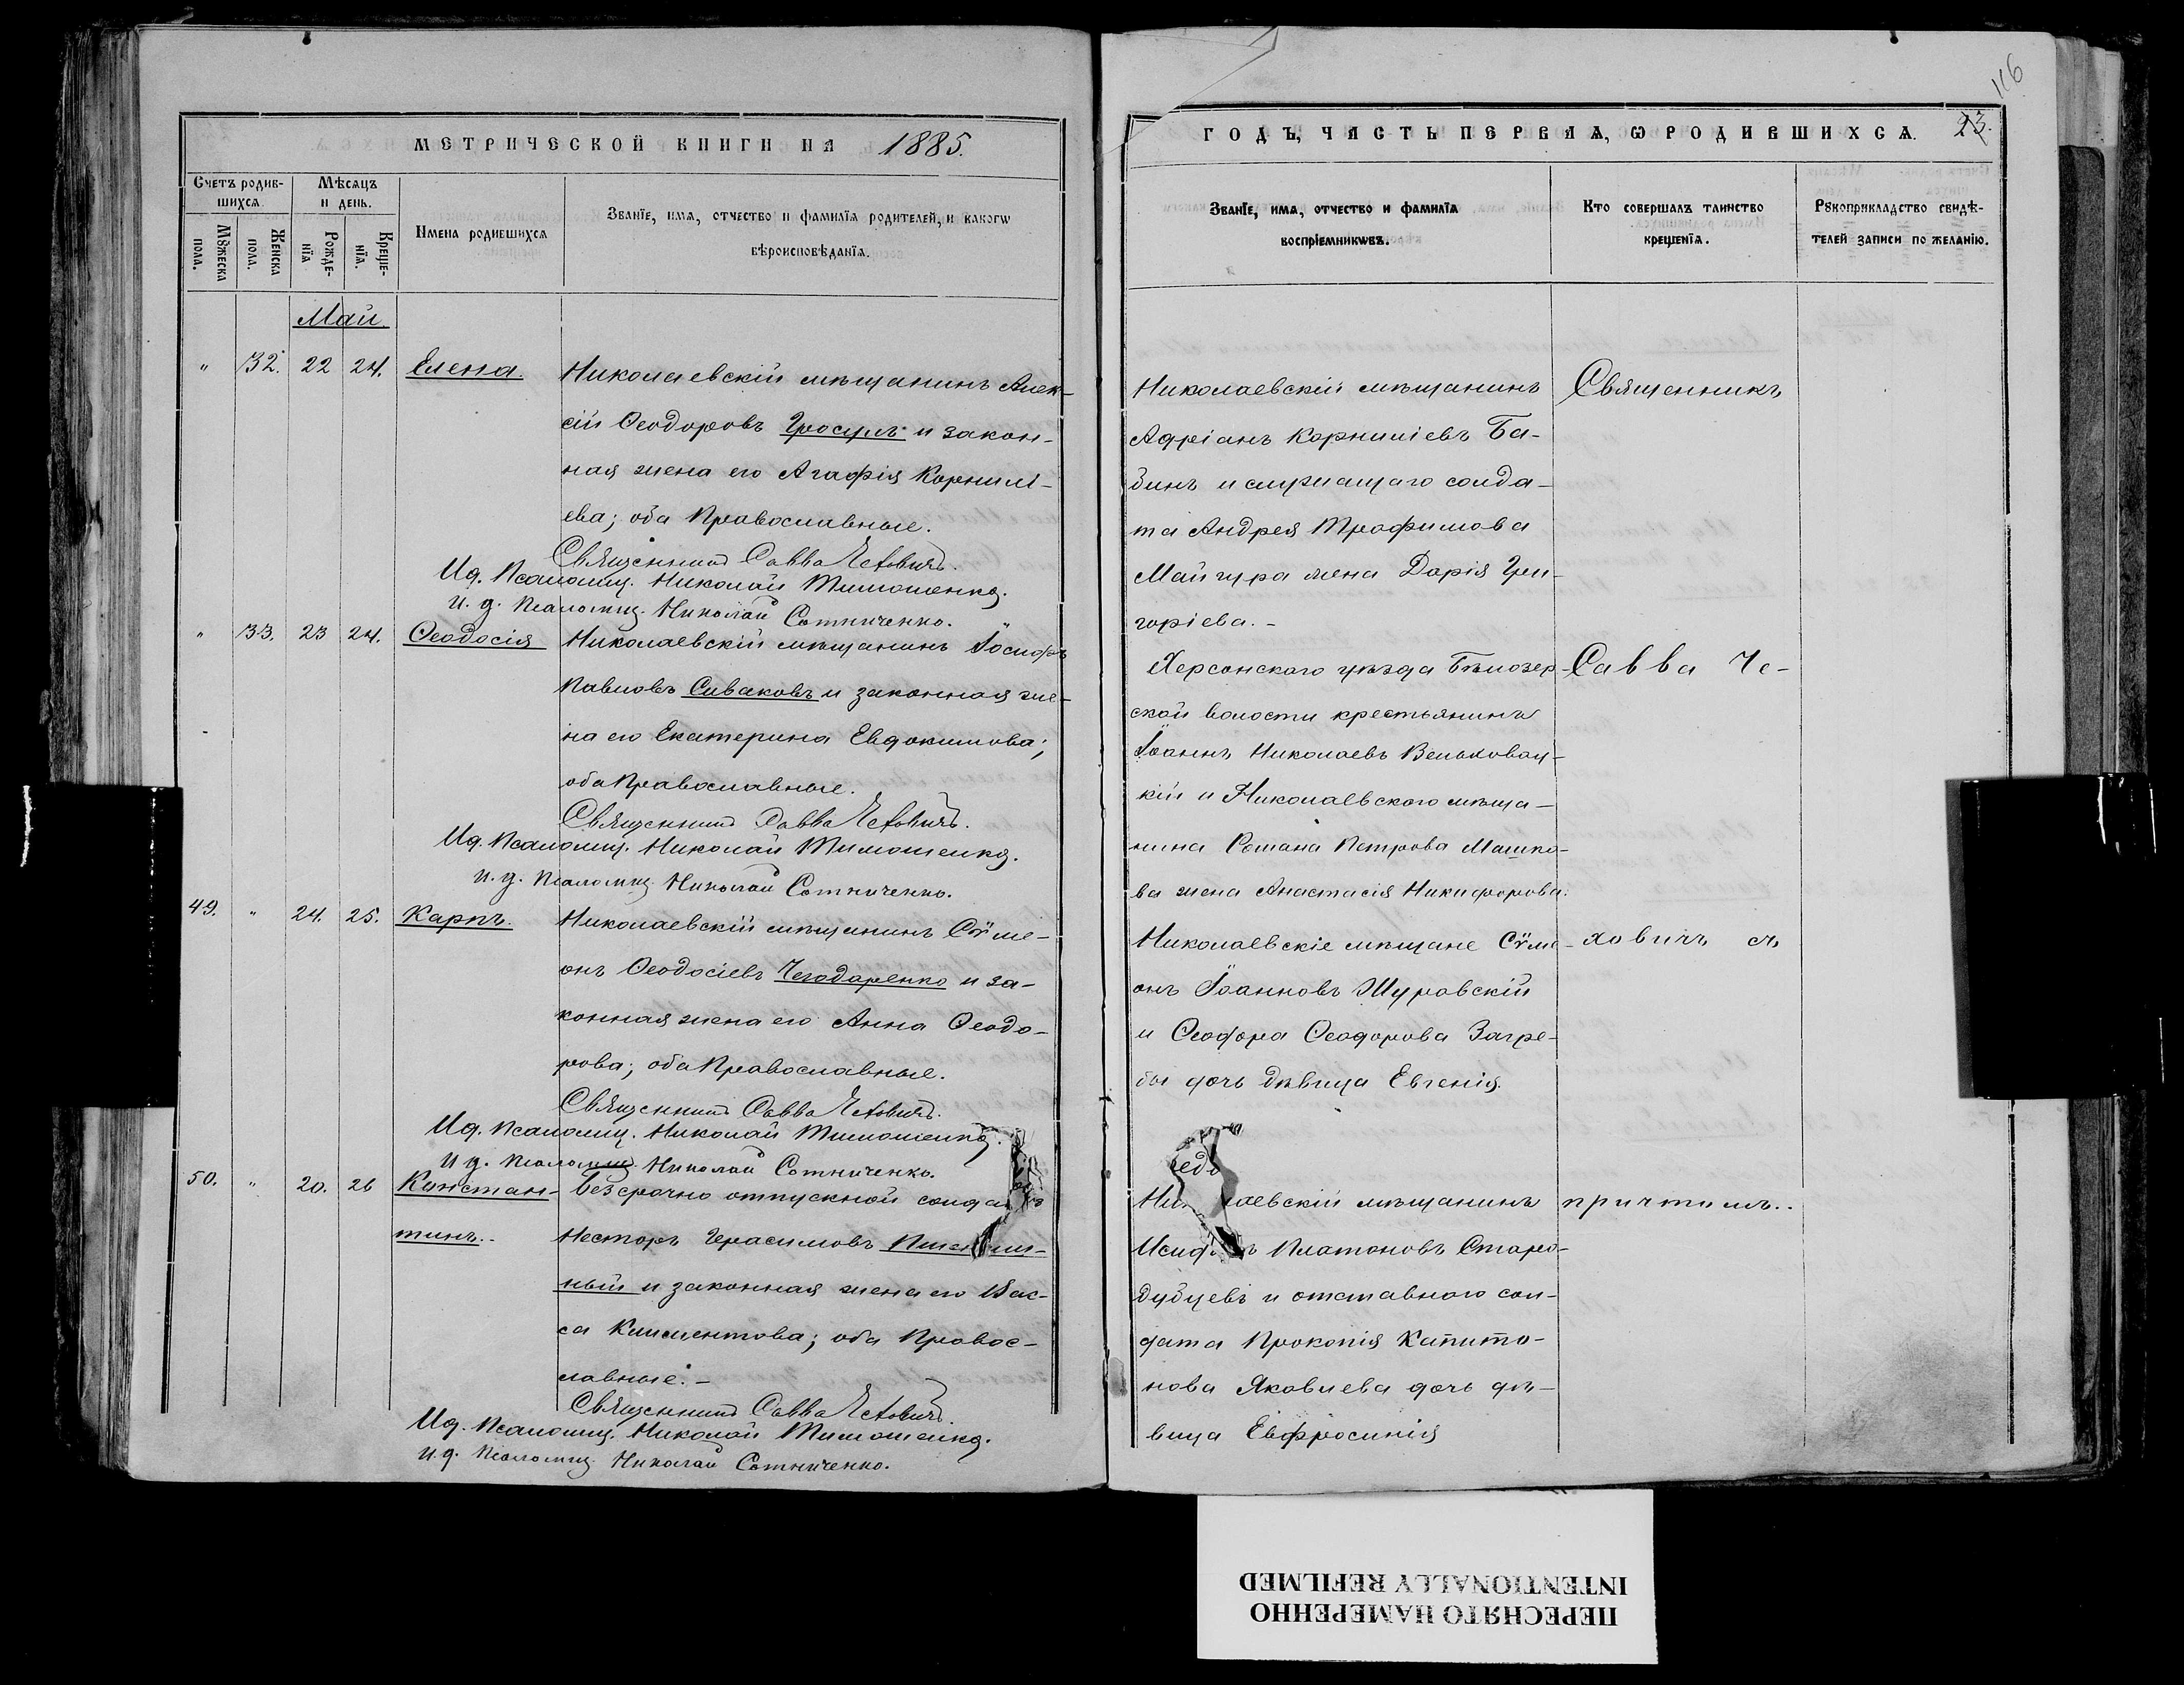 МЕТРИЧЕСКОЙ КНИГИ НА 1885.
Счетъ родив-
шихся.
Мѣсяцъ
и день.
Мꙋжеска
пола.
Женска
пола.
Рожде-
нїя
Креще-
нїя.
Имена родившихся
Званїе, имя, отчество и фамилїя родителей, и какогѡ
вѣроисповѣданїя.
Май.
" 32. 22 24. Елена.
Николаевскій мѣщанинъ Алек-
сій Ѳеодоровъ Гросулъ и закон-
ная жена его Агафія Корнилі-
ева; оба Православные.
Священникъ Савва Чеховичъ.
И.д. Псаломщ. Николай Тимошенко.
и. д. Псаломщ. Николай Сотниченко.
" 33. 23 24. Ѳеодосія
Николаевскій мѣщанинъ Іосифъ
Павловъ Сиваковъ и законная же-
на его Екатерина Евдокимова;
оба Православные.
Священникъ Савва Чеховичъ.
И.д. Псаломщ. Николай Тимошенко.
и. д. Псаломщ. Николай Сотниченко.
49. " 24. 25. Карпъ.
Николаевскій мѣщанинъ Сѵме-
онъ Ѳеодосіевъ Чегодаренко и за-
конная жена его Анна Ѳеодо-
рова; оба Православные.
Священникъ Савва Чеховичъ.
И.д. Псаломщ. Николай Тимошенко.
и д. Псаломщ. Николай Сотниченко.
50. " 20. 26 Констан-
тинъ.
Безсрочно отпускной солда
Несторъ Герасимовъ
ный и законная жена его Вас-
са Климентова; оба Правос-
лавные. –
Священникъ Савва Чеховичъ.
И.д. Псаломщ. Николай Тимошенко.
и.д. Псаломщ. Николай Сотниченко.
116
ГОДЪ, ЧАСТЬ ПЕРВАЯ, Ѡ РОДИВШИХСЯ. 23.
Званїе, имя, отчество и фамилїя
воспрїемникѡвъ.
Кто совершалъ таинство
крещенїя.
Рꙋкоприкладство свидѣ-
телей записи по желанїю.
Николаевскій мѣщанинъ
Адріанъ Корниліевъ Ба-
бинъ и служащаго солда-
та Андрея Трофимова
Майгура жена Дарія Гри-
горіева. –
Херсонскаго уѣзда Бѣлозер-
ской волости крестьянинъ
Іоаннъ Николаевъ Вельховац-
кій и Николаевскаго мѣща-
нина Романа Петрова Машко-
ва жена Анастасія Никифорова.
Николаевскіе мѣщане Сѵме-
онъ Іоанновъ Шуровскій
и Ѳеодора Ѳеодорова Загре-
бы дочь дѣвица Евгенія.
Ни лаевскій мѣщанинъ
Платоновъ Старо-
дубцевъ и отставного сол-
дата Прокопія Капито-
нова Яковлева дочь дѣ-
вица Евфросинія
Священникъ
Савва Че-
ховичъ съ
причтомъ..
ПЕРЕСНЯТО НАМЕРЕННО
INTENTIONALLY REFILMED